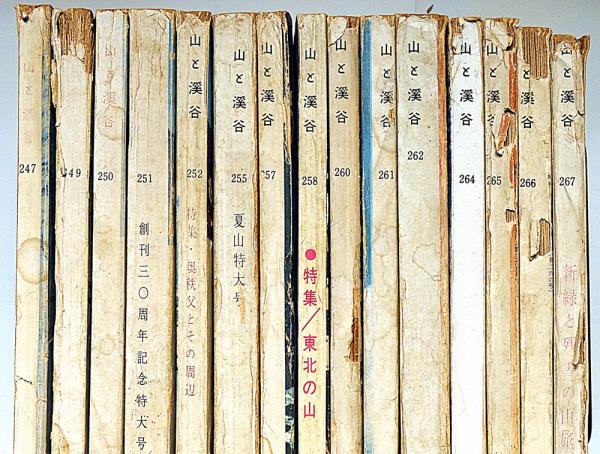 山と溪
247
49
山と溪谷
250
251
創刊三〇周年記念特大号
山と溪谷
252
特集・奥秩父とその周辺
山と溪谷
255
夏山特大号
山と溪谷
257
山と溪谷
258
●特集/東北の山
山と溪谷
260
山と溪谷
261
山と溪谷
262
山と溪谷
264
山と溪谷
265
と溪谷
266
山と溪谷
267
新緑と残雪の山旅